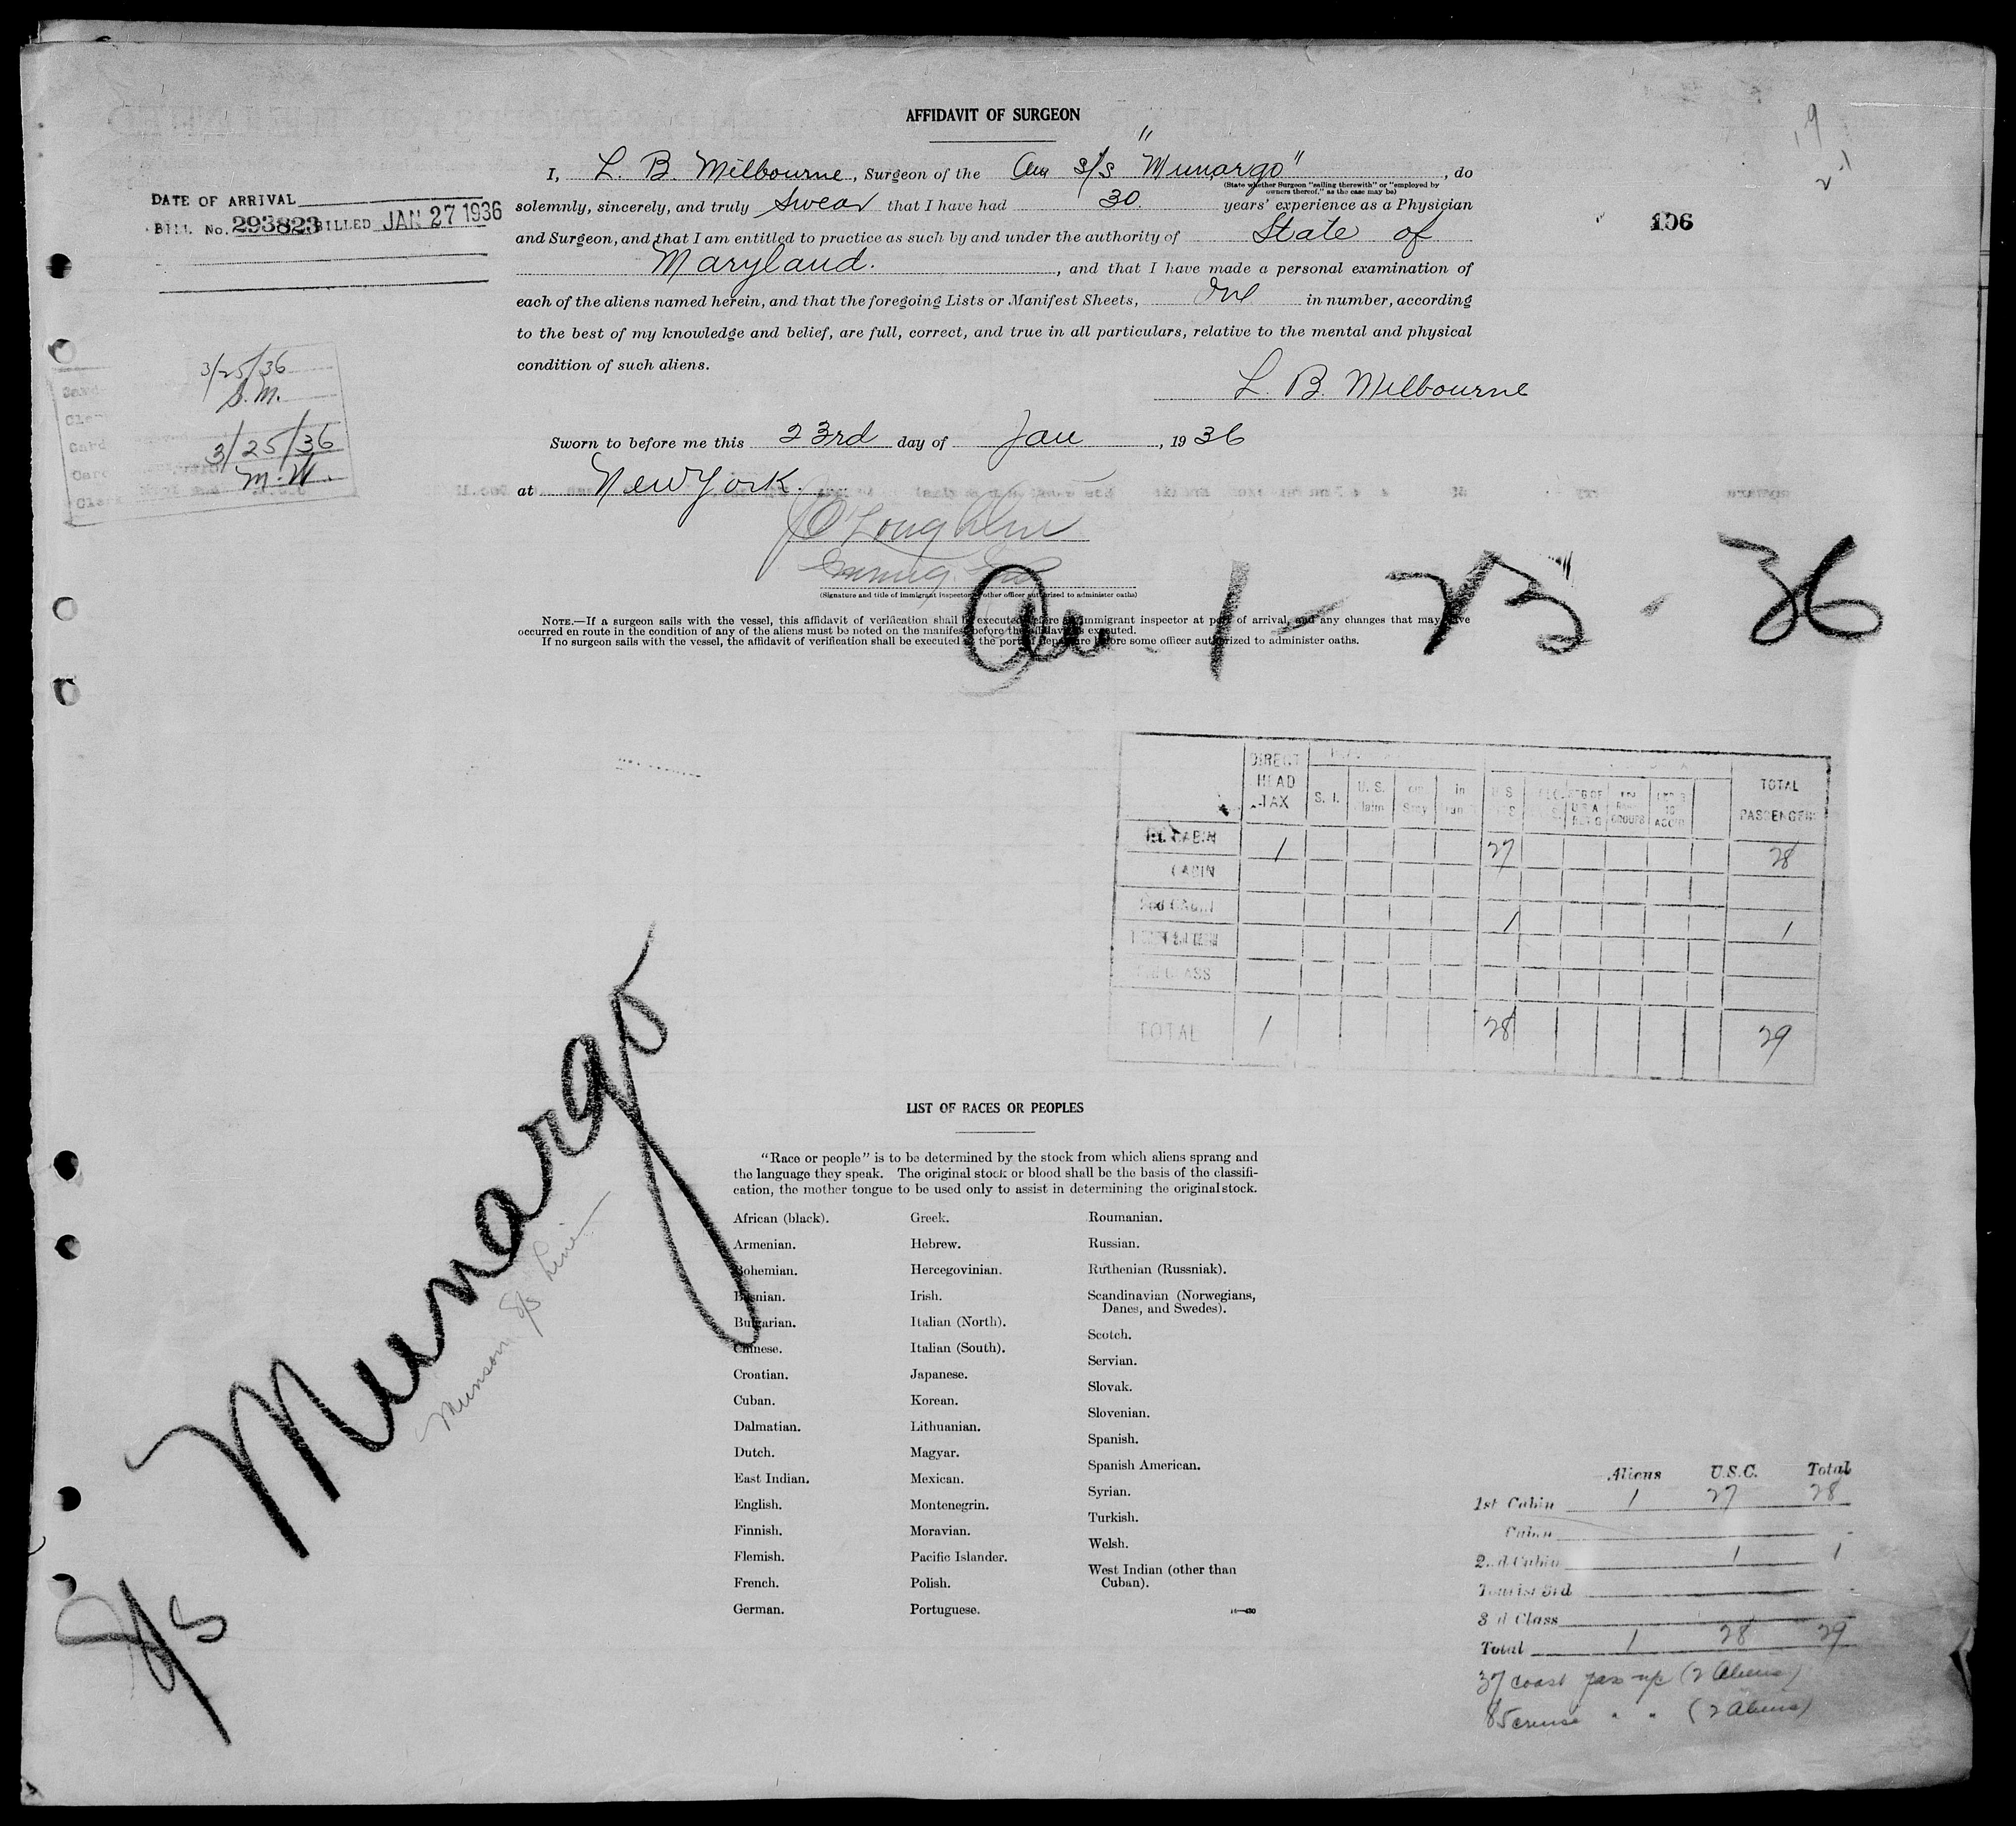 AFFIDAVIT OF SURGEON
I, L. B. Milbourne, Surgeon of the Am S/S "Munargo", do
(State whether Surgeon "sailing therewith" or "employed by owners thereof," as the case may be)
solemnly, sincerely, and truly Swear that I have had 30 years' experience as a Physician
and Surgeon, and that I am entitled to practice as such by and under the authority of State of
Maryland., and that I have made a personal examination of
each of the aliens named herein, and that the foregoing Lists or Manifest Sheets, One in number, according
to the best of my knowledge and belief, are full, correct, and true in all particulars, relative to the mental and physical
condition of such aliens.
L. B. Milbourne
Sworn to before me this 23rd day of Jan, 1936
at New York.
O'Loughlin
Immig. Ins
(Signature and title of immigrant inspector or other officer authorized to administer oaths)
NOTE.—If a surgeon sails with the vessel, this affidavit of verification shall be executed before an immigrant inspector at port of arrival, and any changes that may have
occurred en route in the condition of any of the aliens must be noted on the manifest before the affidavit is executed.
If no surgeon sails with the vessel, the affidavit of verification shall be executed at the port of departure before some officer authorized to administer oaths.
DATE OF ARRIVAL
BILL No. 293823 BILLED JAN 27 1936
106
19
3/25/36
S.M.
3/25/36
M.W.
Arr. 1 - 23 - 36
DIRECT HEAD TAX S. I. U. S. TOTAL PASSENGERS
1st CABIN 1 27 28
CABIN
2nd CABIN 1 1
CLASS
TOTAL 1 28 29
S/S Munargo
Munson S/S Line
LIST OF RACES OR PEOPLES
"Race or people" is to be determined by the stock from which aliens sprang and
the language they speak. The original stock or blood shall be the basis of the classifi-
cation, the mother tongue to be used only to assist in determining the original stock.
African (black).
Armenian.
Bohemian.
Bosnian.
Bulgarian.
Chinese.
Croatian.
Cuban.
Dalmatian.
Dutch.
East Indian.
English.
Finnish.
Flemish.
French.
German.
Greek.
Hebrew.
Hercegovinian.
Irish.
Italian (North).
Italian (South).
Japanese.
Korean.
Lithuanian.
Magyar.
Mexican.
Montenegrin.
Moravian.
Pacific Islander.
Polish.
Portuguese.
Roumanian.
Russian.
Ruthenian (Russniak).
Scandinavian (Norwegians,
Danes, and Swedes).
Scotch.
Servian.
Slovak.
Slovenian.
Spanish.
Spanish American.
Syrian.
Turkish.
Welsh.
West Indian (other than
Cuban).
Aliens U.S.C. Total
1st Cabin 1 27 28
Cabin
2nd Cabin 1 1
Tourist 3rd
3rd Class
Total 1 28 29
37 coast pass up (2 Aliens)
85 cruise " " (2 Aliens)